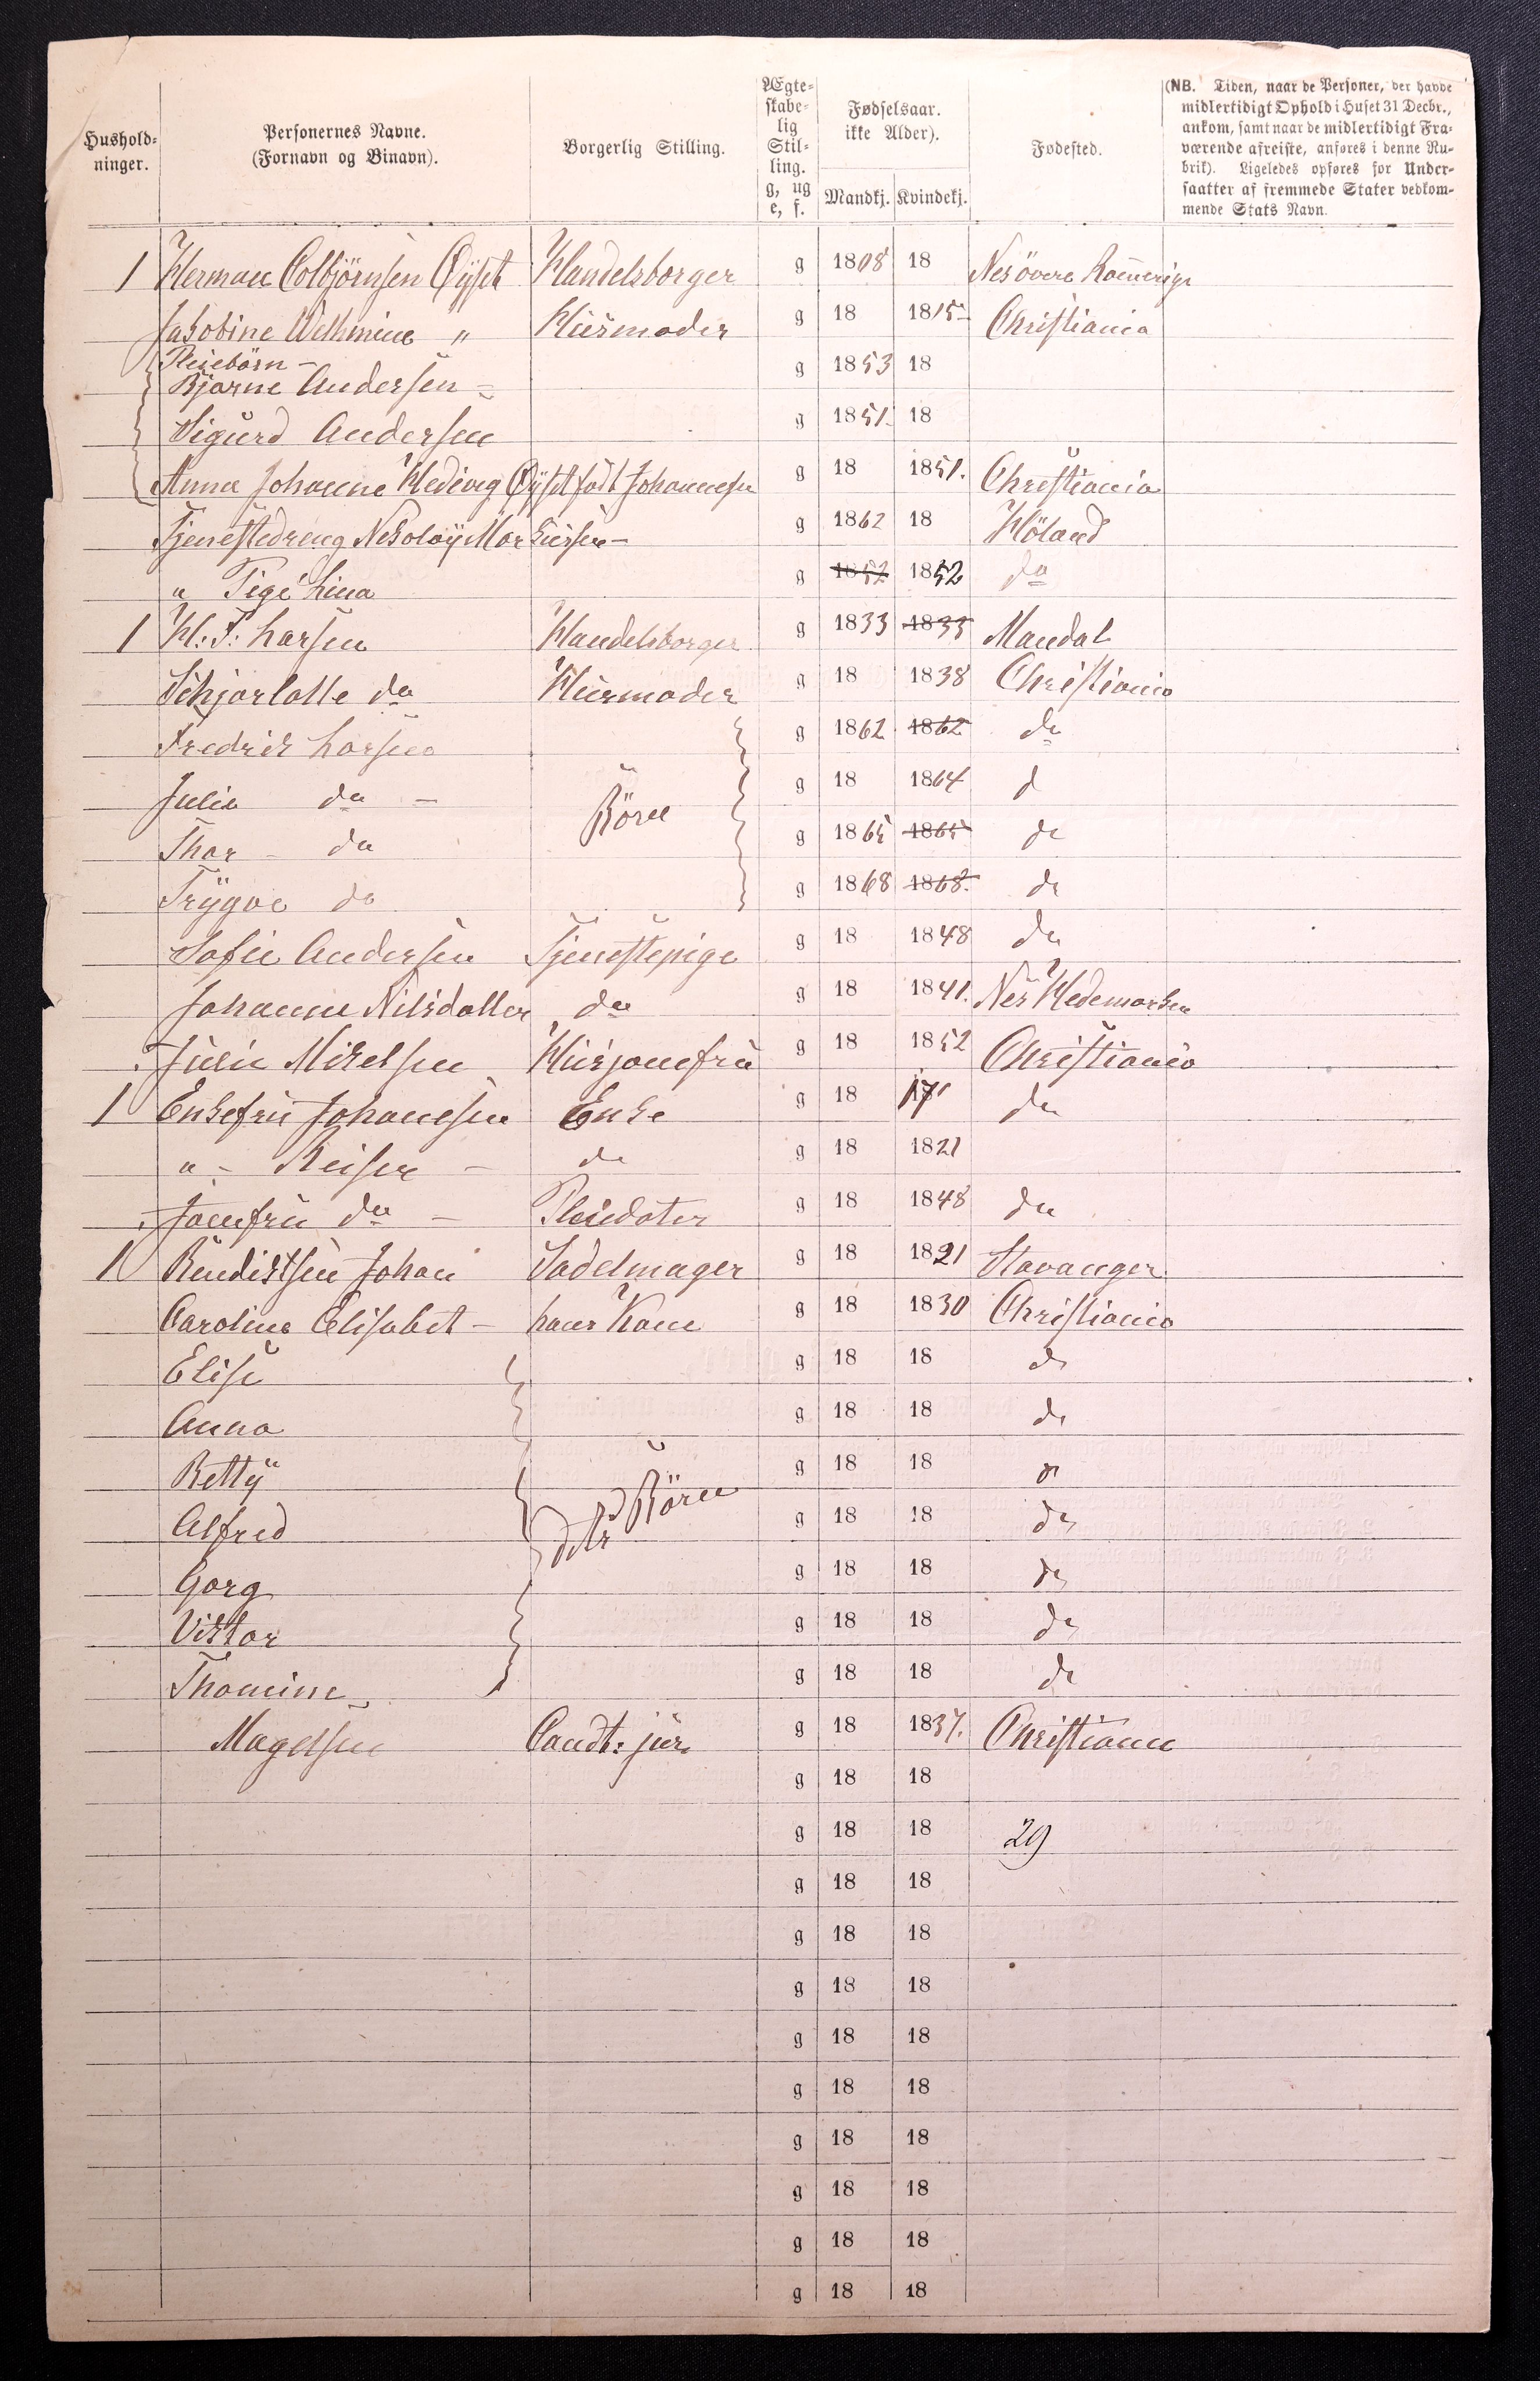 Hushold-
ninger.
Personernes Navne.
(Fornavn og Binavn).
Borgerlig Stilling.
Ægte-
skabe-
lig
Stil-
ling.
g, ug
e, f.
Fødselsaar.
ikke Alder).
Mandkj. Kvindekj.
Fødested.
(NB. Tiden, naar de Personer, der havde
midlertidigt Ophold i Huset 31 Decbr.,
ankom, samt naar de midlertidigt Fra-
værende afreiste, anføres i denne Ru-
brik). Ligeledes opføres for Under-
saatter af fremmede Stater vedkom-
mende Stats Navn.
1 Herman Colbjörnsen Öyset Handelsborger g 1808 18 Nes övere Romerige
Jakobine Wilhmine " Husmoder g 18 1815 Christiania
Pleiebörn -
Bjarne Andersen g 1853 18
Sigurd Andersen g 1851. 18
Anna Johanne Hedevig Öyset födt Johannesen g 18 1851. Christiania
Tjenestedreng Nekolay Markusen - g 1862 18 Höland
" Pige Lina g 1852 1852 do
1 H: F: Larsen Handelsborger g 1833 1833 Mandal
Schjarlotte do Husmoder g 18 1838 Christiania
Fredrik Larsen g 1862 1862 do
Julie do - Börn g 18 1864 d
Thor - do g 1865 1865 do
Trygve do g 1868 1868. do
Sofie Andersen Tjenestepige g 18 1848 do
Johanne Nilsdatter do g 18 1841. Nes Hedemarken
Julie Mikelsen Husjomfru g 18 1852 Christiania
1 Enkefru Johanesen Enke g 18 do
" - Reiser - do g 18 1821
Jomfru do - Pleiedoter g 18 1848 do
1 Bendiktsen Johan Sadelmager g 18 1821 Stavanger
Caroline Elisabet - hans Kone g 18 1830 Christiania
Elise g 18 18 do
Anna g 18 18 do
Betty g 18 18 do
Alfred Börn g 18 18 do
Gorg g 18 18 do
Viktor g 18 18 do
Thomine g 18 18 do
Magelsen Candt: jur. g 18 1837. Christiania
g 18 18
g 18 18 29
g 18 18
g 18 18
g 18 18
g 18 18
g 18 18
g 18 18
g 18 18
g 18 18
g 18 18